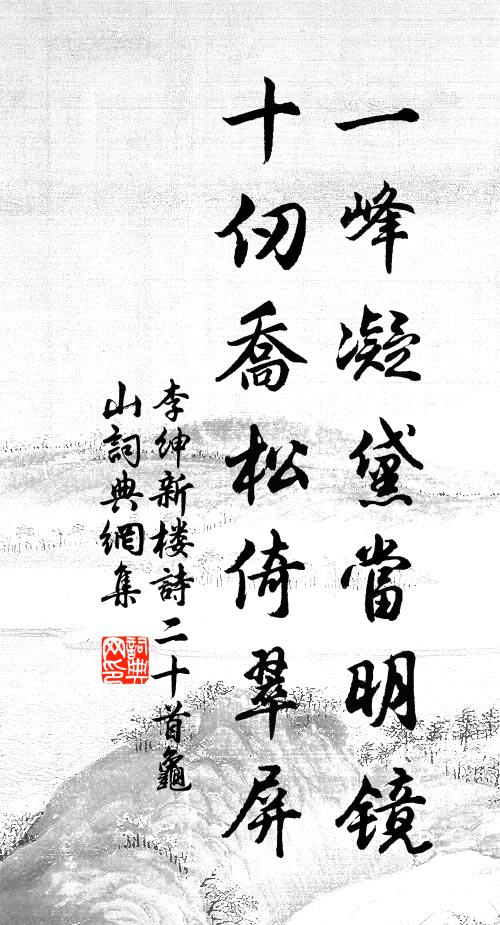 一峰凝黛當明鏡
十仞喬松倚翠屏
李紳新楼詩二十首龜
山詞典網集
詞典
网印